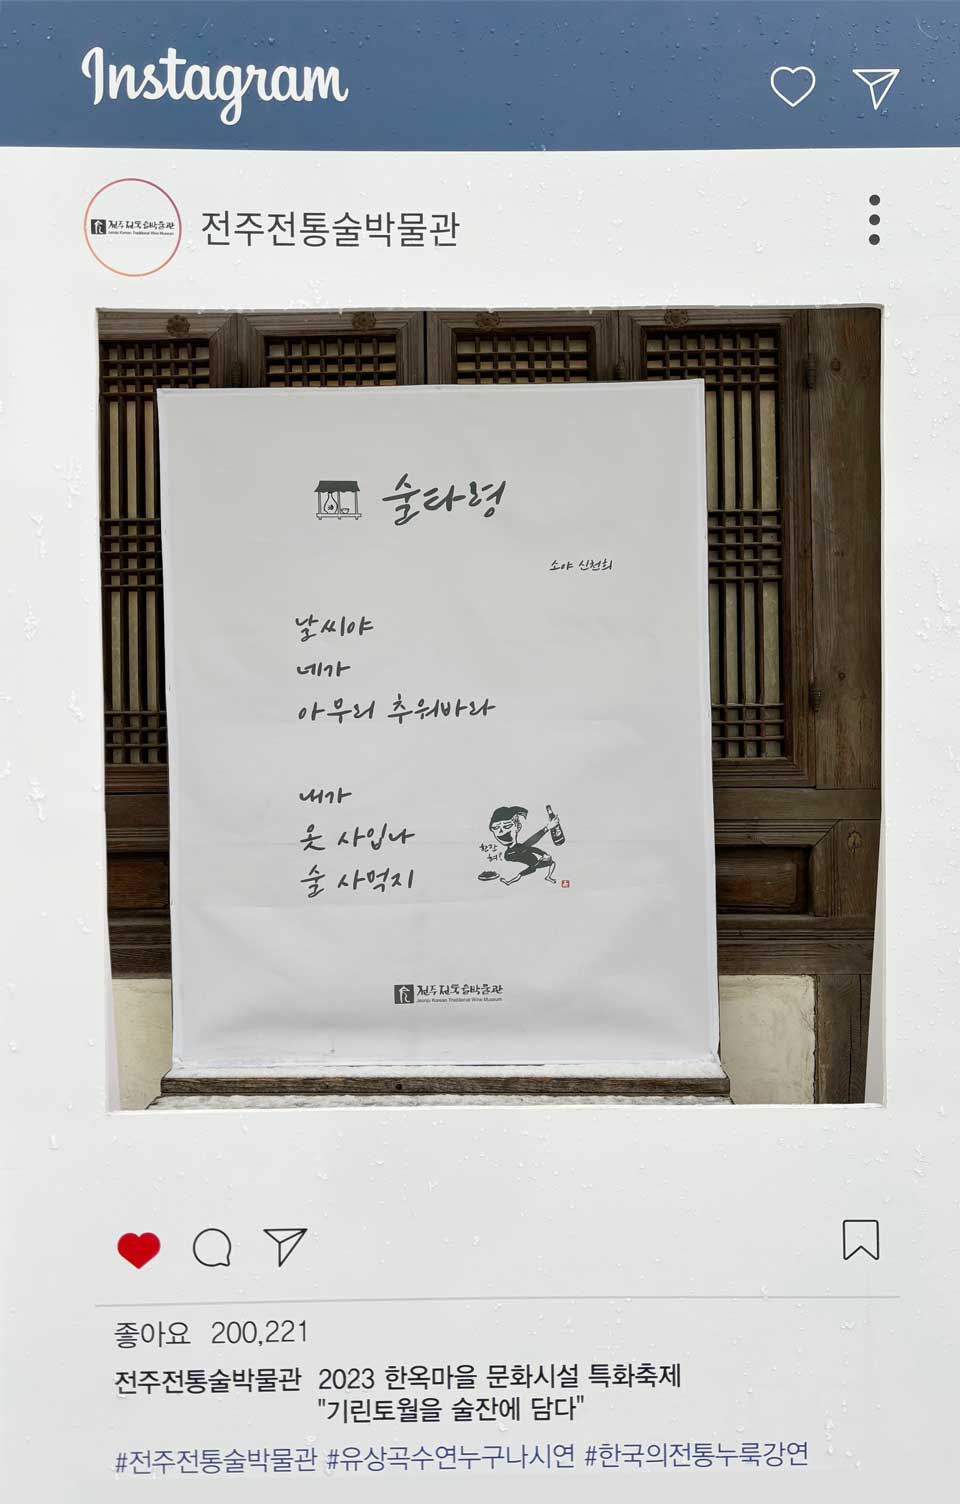 Instagram
전주전통술박물관
Jeonju Korean Traditional Wine Museum
전주전통술박물관
술타령
소야 신천희
날씨야
네가
아무리 추워바라
내가
옷 사입나
술 사먹지
한잔
혀!
전주전통술박물관
Jeonju Korean Traditional Wine Museum
좋아요 200,221
전주전통술박물관 2023 한옥마을 문화시설 특화축제
"기린토월을 술잔에 담다"
#전주전통술박물관 #유상곡수연누구나시연 #한국의전통누룩강연